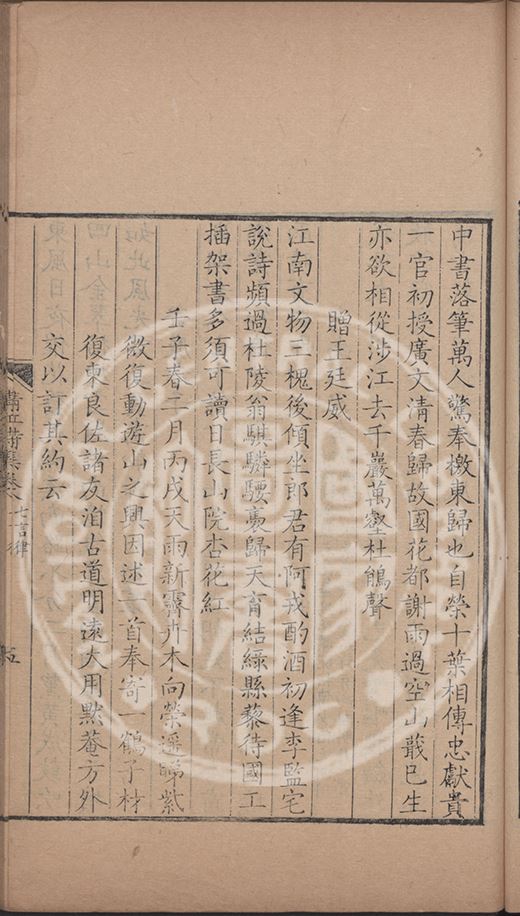 中書落筆萬人驚奉檄東歸也自榮十葉相傳忠獻貴
一官初授廣文清春歸故國花都謝雨過空山蕺已生
亦欲相從涉江去千巖萬壑杜鵑聲
贈王廷威
江南文物三槐後傾坐郎君有阿戎酌酒初逢李監宅
說詩頻過杜陵翁騏驎騕褭歸天育結綠縣藜待國工
插架書多須可讀日長山院杏花紅
壬子春二月丙戌天雨新霽卉木向榮遥睇紫
微復動遊山之興因述一首奉寄一鶴子材
復東良佐諸友洎古道明遠大用默菴方外
交以訂其約云
集卷 七言律
五